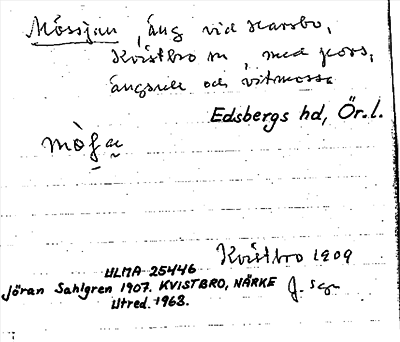 Mössjan, äng vid Harsbo,
Kvistbro sn, med pors,
ängsull och vitmossa
Edsbergs hd, Ör.l.
Kvistbro 1909
ULMA 25446
Jöran Sahlgren 1907. KVISTBRO, NÄRKE
J. Sgn
Utred. 1968.